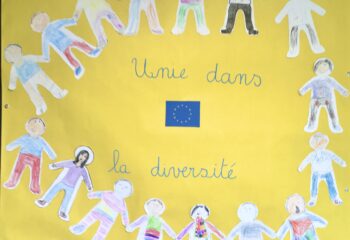 Unie dans
la diversité